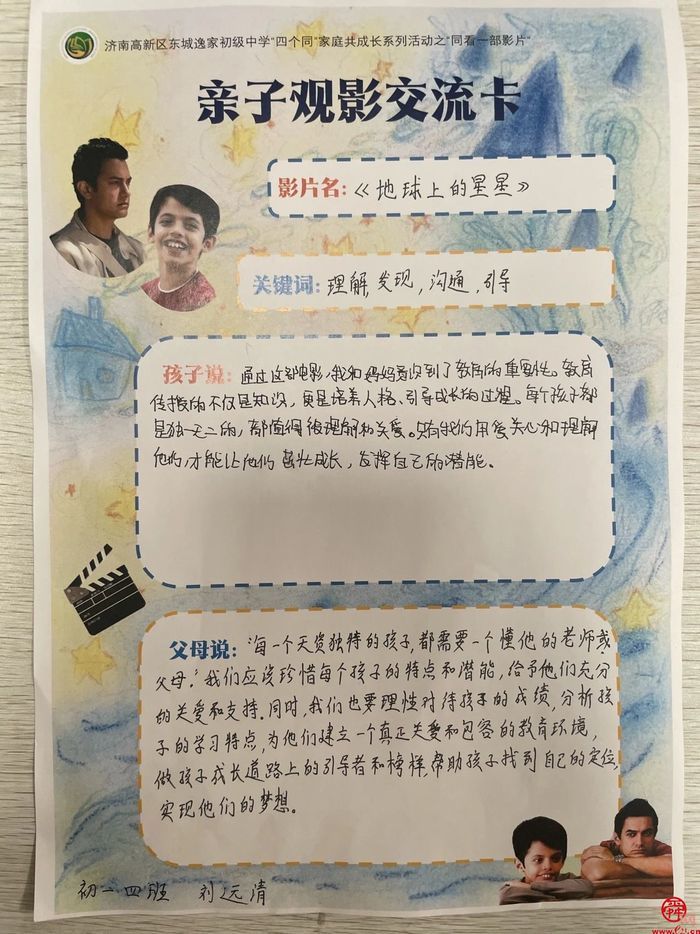 济南高新区东城逸家初级中学"四个同"家庭共成长系列活动之"同看一部影片"
亲子观影交流卡
影片名:《地球上的星星》
关键词:理解,发现,沟通,引导
孩子说:通过这部电影,我和妈妈意识到了教育的重要性。教育
传授的不仅是知识,更是培养人格、引导成长的过程。每个孩子都
是独一无二的,都值得被理解和关爱。只有我们用爱关心和理解
他们,才能让他们茁壮成长,发挥自己的潜能。
父母说:"每一个天资独特的孩子,都需要一个懂他的老师或
父母."我们应该珍惜每个孩子的特点和潜能,给予他们充分
的关爱和支持.同时,我们也要理性对待孩子的成绩,分析孩
子的学习特点,为他们建立一个真正关爱和包容的教育环境,
做孩子成长道路上的引导者和榜样,帮助孩子找到自己的定位,
实现他们的梦想。
初一四班 刘远清